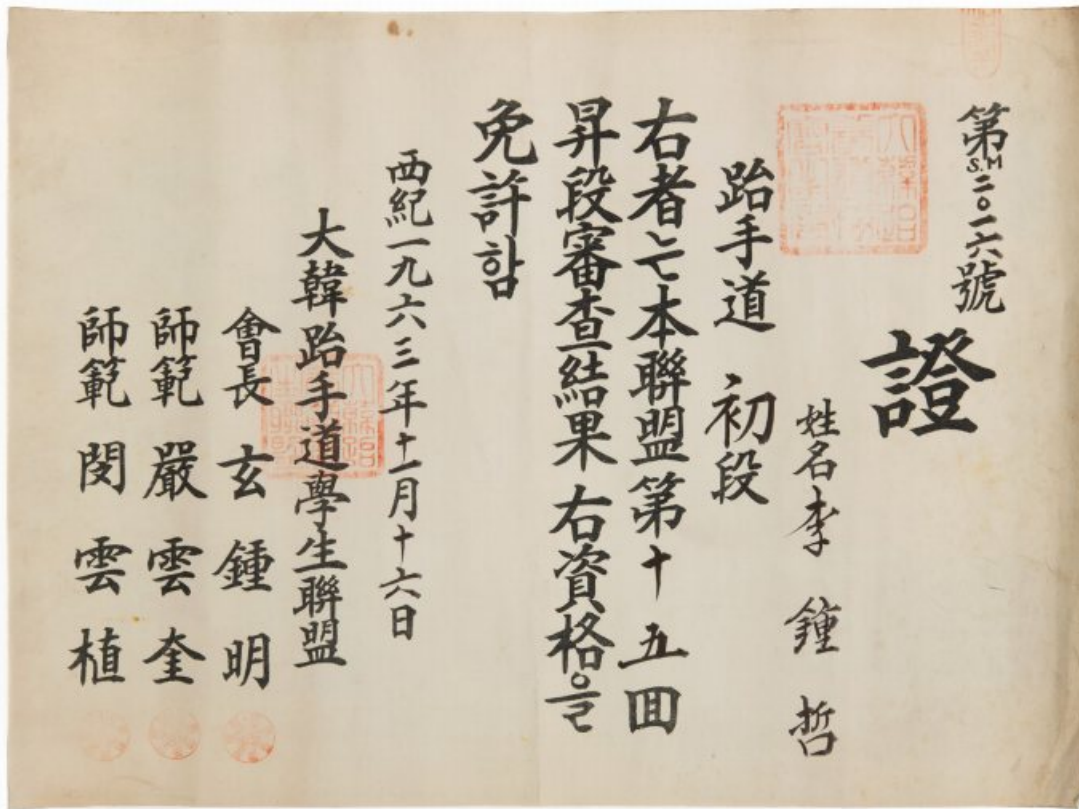 第S.M二〇一六號
證
姓名 李鍾哲
跆手道 初段
右者는本聯盟第十五回
昇段審查結果右資格을
免許함
西紀一九六三年十一月十六日
大韓跆手道學生聯盟
會長 玄鍾明
師範 嚴雲奎
師範 閔雲植